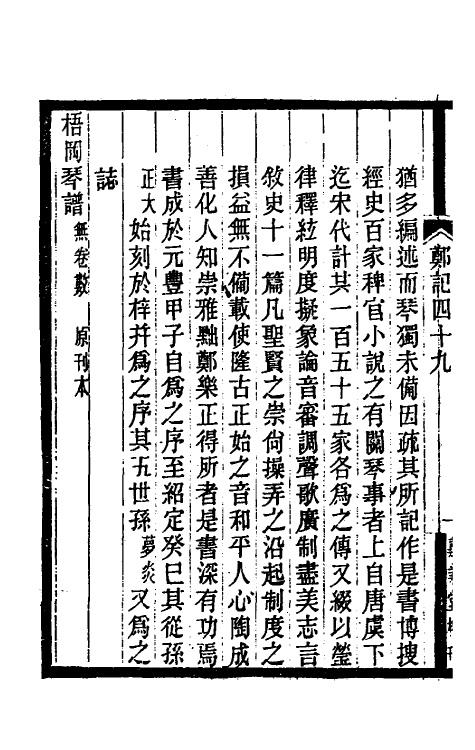 鄭記四十九
一
猶多編述而琴獨未備因疏其所記作是書博搜
經史百家稗官小說之有關琴事者上自唐虞下
迄宋代計其一百五十五家各爲之傳又綴以瑩
律釋絃明度擬象論音審調聲歌廣制盡美志言
敘史十一篇凡聖賢之崇尙操弄之沿起制度之
損益無不僃載使隆古正始之音和平人心陶成
善化人知崇雅黜鄭樂正得所者是書深有功焉
書成於元豐甲子自爲之序至紹定癸巳其從孫
正大始刻於梓幷爲之序其五世孫夢炎又爲之
誌
梧岡琴譜無卷數 原刊本